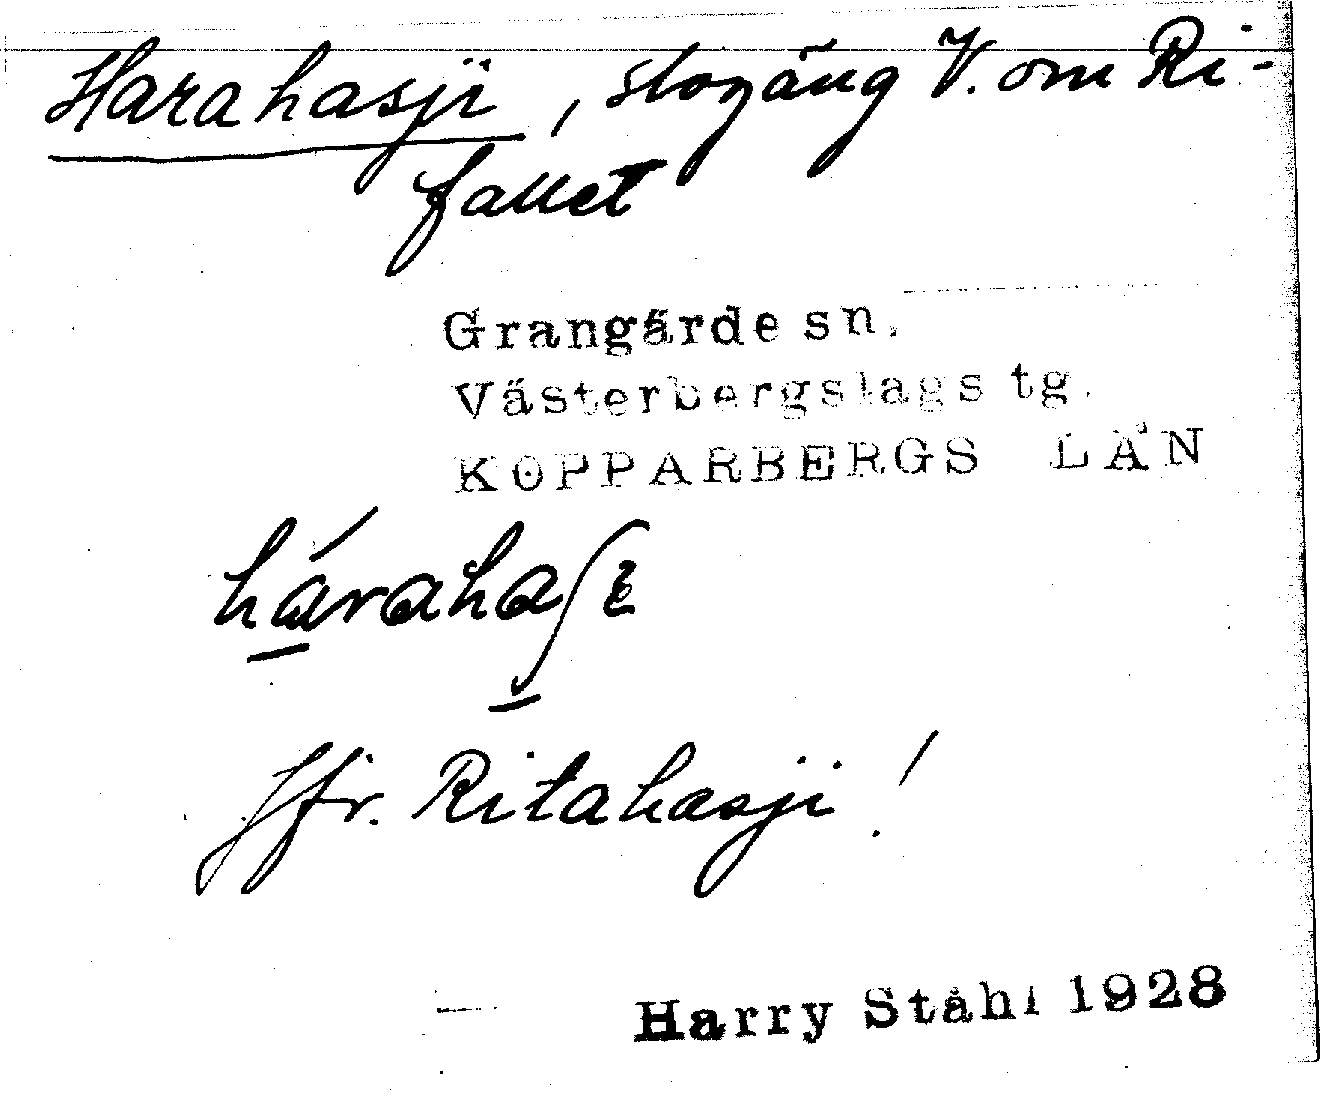 Harahasji, slogäng V. om Ri-
fallet
Grangärde sn.
Västerbergslags tg.
KOPPARBERGS LÄN
Jfr. Ritahasji!
Harry Ståhl 1928